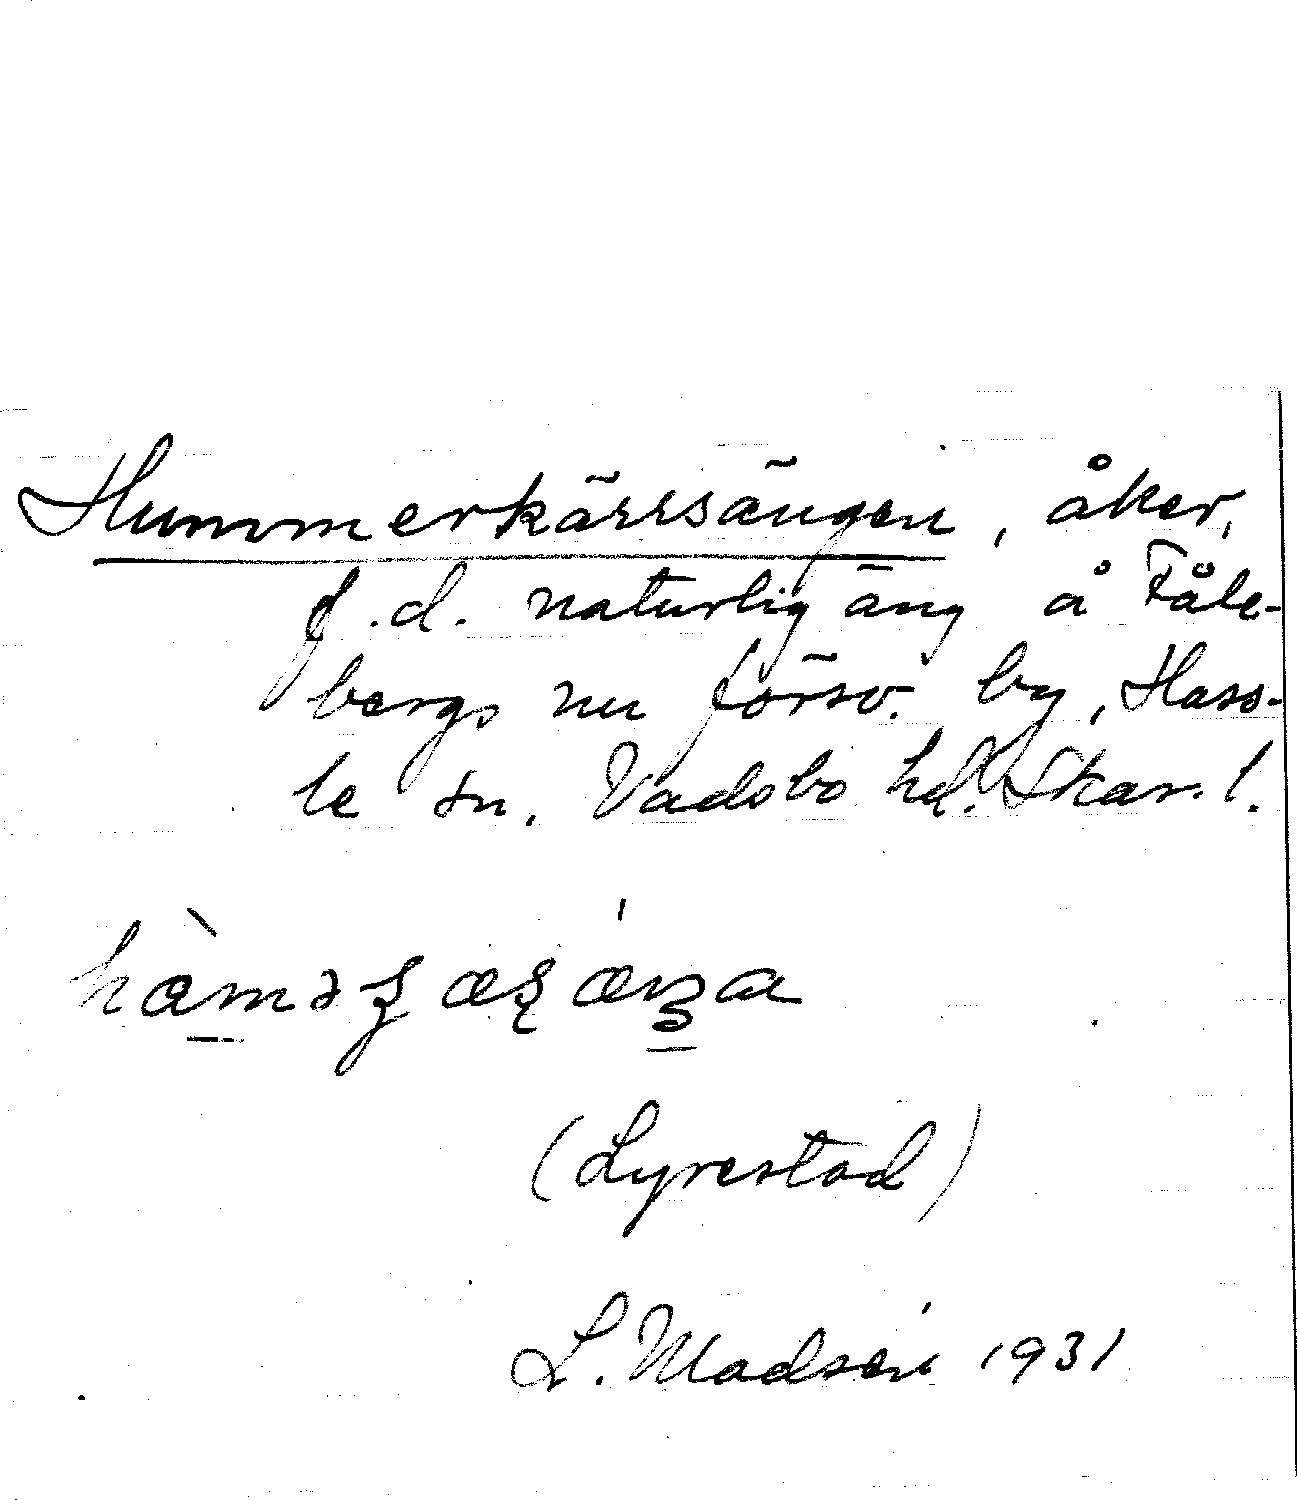 Hummerkärrsängen, åker,
f.d. naturlig äng å Fåle-
bergs nu försv. by, Hass-
le sn. Vadsbo hd. Skar. l.
(Lyrestad)
L. Madsén 1931